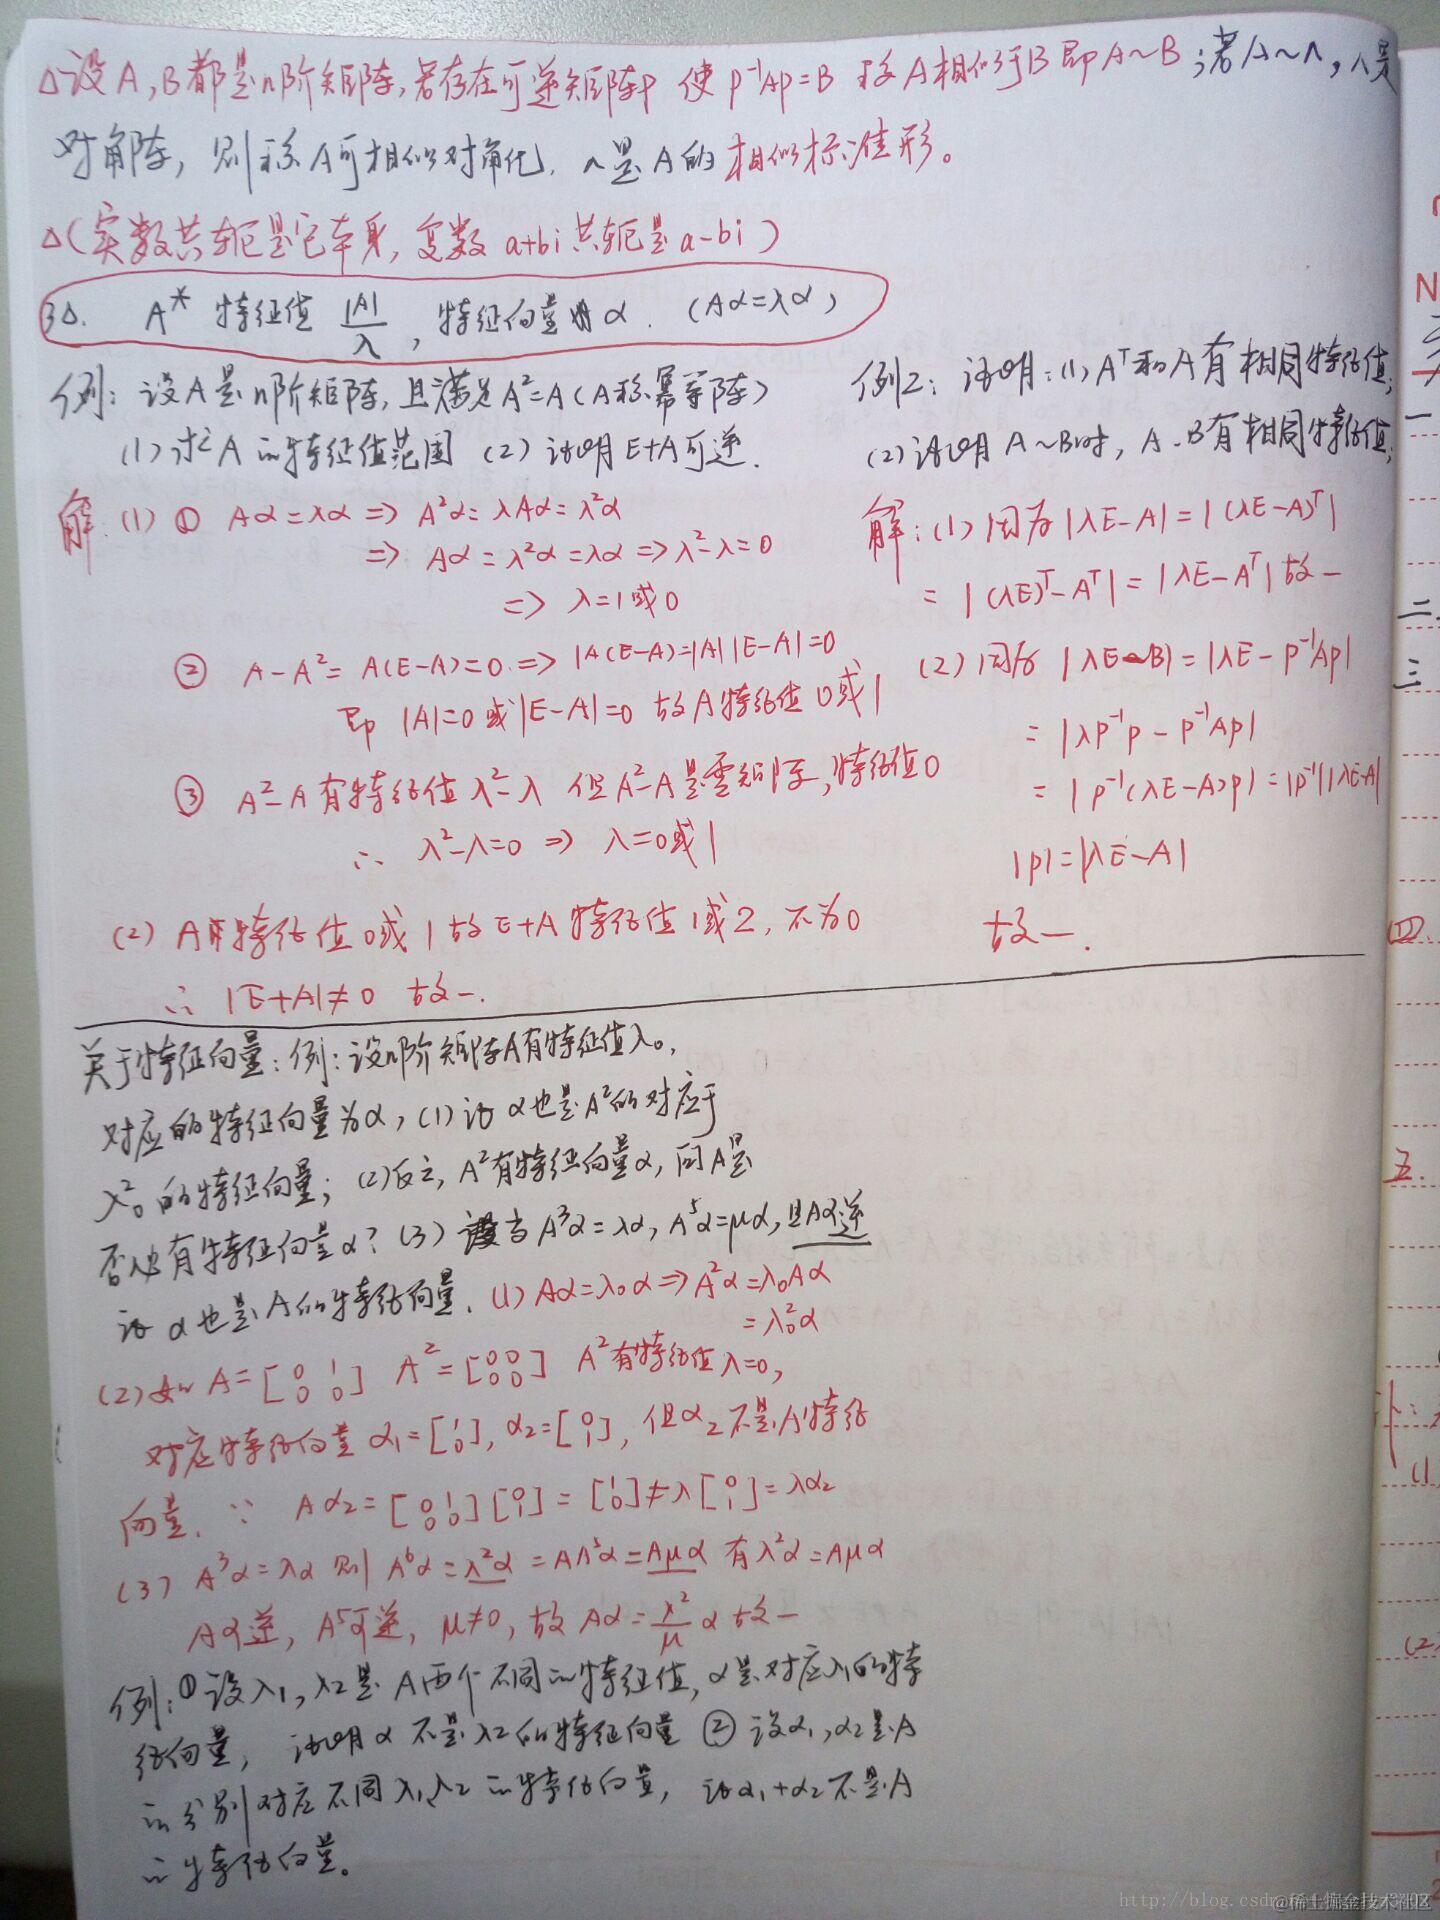 △设A,B都是n阶矩阵,若存在可逆矩阵P 使 P⁻¹AP=B 称A相似于B即A~B;若A~Λ,Λ是
对角阵,则称A可相似对角化,Λ是A的相似标准形。
△(实数共轭是它本身,复数 a+bi 共轭是 a-bi)
3△. A* 特征值 |A|/λ,特征向量为α.(Aα=λα)
例:设A是n阶矩阵,且满足A²=A(A称幂等阵)
(1)求A的特征值范围 (2)证明E+A可逆.
解:(1) ① Aα=λα => A²α=λAα=λ²α
=> Aα=λ²α=λα => λ²-λ=0
=> λ=1或0
② A-A²=A(E-A)=0 => |A(E-A)=|A||E-A|=0
即 |A|=0或|E-A|=0 故A特征值0或1
③ A²-A有特征值λ²-λ 但A²-A是零矩阵,特征值0
∴ λ²-λ=0 => λ=0或1
(2) A的特征值0或1故E+A特征值1或2,不为0
∴ |E+A|≠0 故~.
例2:证明:(1)Aᵀ和A有相同特征值;
(2)证明A~B时,A、B有相同特征值;
解:(1)因为|λE-A|=|(λE-A)ᵀ|
=|(λE)ᵀ-Aᵀ|=|λE-Aᵀ|故~
(2)因为|λE-B|=|λE-P⁻¹AP|
=|λP⁻¹P-P⁻¹AP|
=|P⁻¹(λE-A)P|=|P⁻¹||λE-A|
|P|=|λE-A|
故~.
关于特征向量:例:设n阶矩阵A有特征值λ₀,
对应的特征向量为α,(1)证α也是A²的对应于
λ₀²的特征向量;(2)反之,A²有特征向量α,问A是
否也有特征向量α?(3)当A³α=λα,A⁵α=μα,且A可逆
证α也是A的特征向量.(1)Aα=λ₀α=>A²α=λ₀Aα
=λ₀²α
(2)如A=[0 1 0 0] A²=[0 0 0 0] A²有特征值λ=0,
对应特征向量α₁=[1 0],α₂=[0 1],但α₂不是A特征
向量.∵ Aα₂=[0 1 0 0][0 1]=[1 0]≠λ[0 1]=λα₂
(3) A³α=λα则A⁶α=λ²α=AA⁵α=Aμα有λ²α=Aμα
A可逆,A⁵可逆,μ≠0,故Aα=λ²/μ α故~
例:①设λ₁,λ₂是A两个不同的特征值,α是对应λ₁的特
征向量,证明α不是λ₂的特征向量 ②设α₁,α₂是A
的分别对应不同λ₁、λ₂的特征向量,证α₁+α₂不是A
的特征向量。
N
一
二
三
四.
五.
(1)
(2)
http://blog.csdn
@稀土掘金技术社区